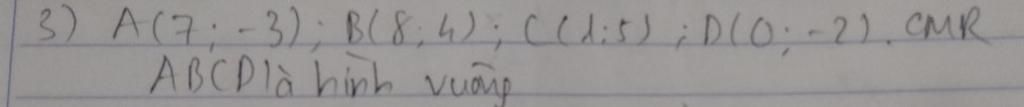 3) A(7; -3); B(8; 4); C(1; 5); D(0; -2). CMR
ABCD là hình vuông